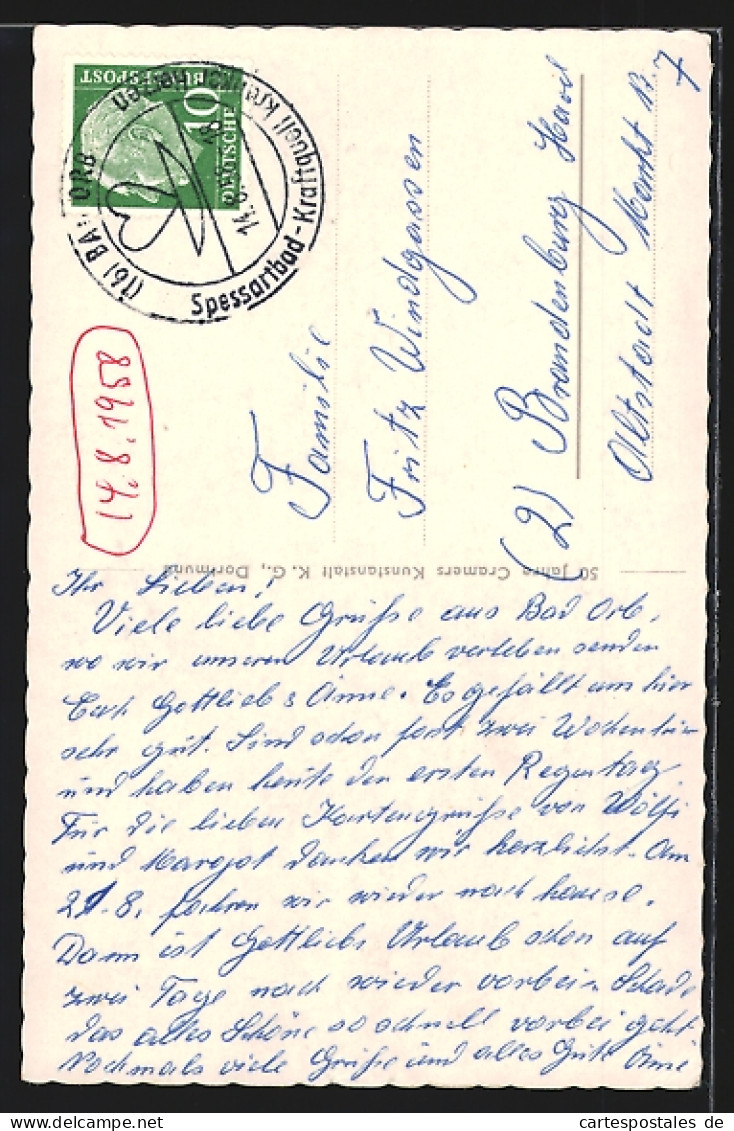 DEUTSCHE
BUNDESPOST
10
(16) BAD ORB
14.8.58
Spessartbad - Kraftquell
14.8.1958
Familie
Fritz Windgassen
(2) Brandenburg Havel
Altstadt Markt Nr. 7
50 Jahre Cramers Kunstanstalt K. G., Dortmund
Ihr Lieben!
Viele liebe Grüße aus Bad Orb,
wo wir unseren Urlaub verleben senden
Euch Gottlieb & Änne. Es gefällt uns hier
sehr gut. Sind schon fast zwei Wochen hier
und haben heute den ersten Regentag
Für die lieben Kartengrüße von Wolfi
und Margot danken wir herzlichst. Am
21.8. fahren wir wieder nach hause.
Dann ist Gottliebs Urlaub schon auf
zwei Tage nach wieder vorbei. Schade
das alles Schöne so schnell vorbei geht
Nochmals viele Grüße und alles Gute Änne
cartespostales.de